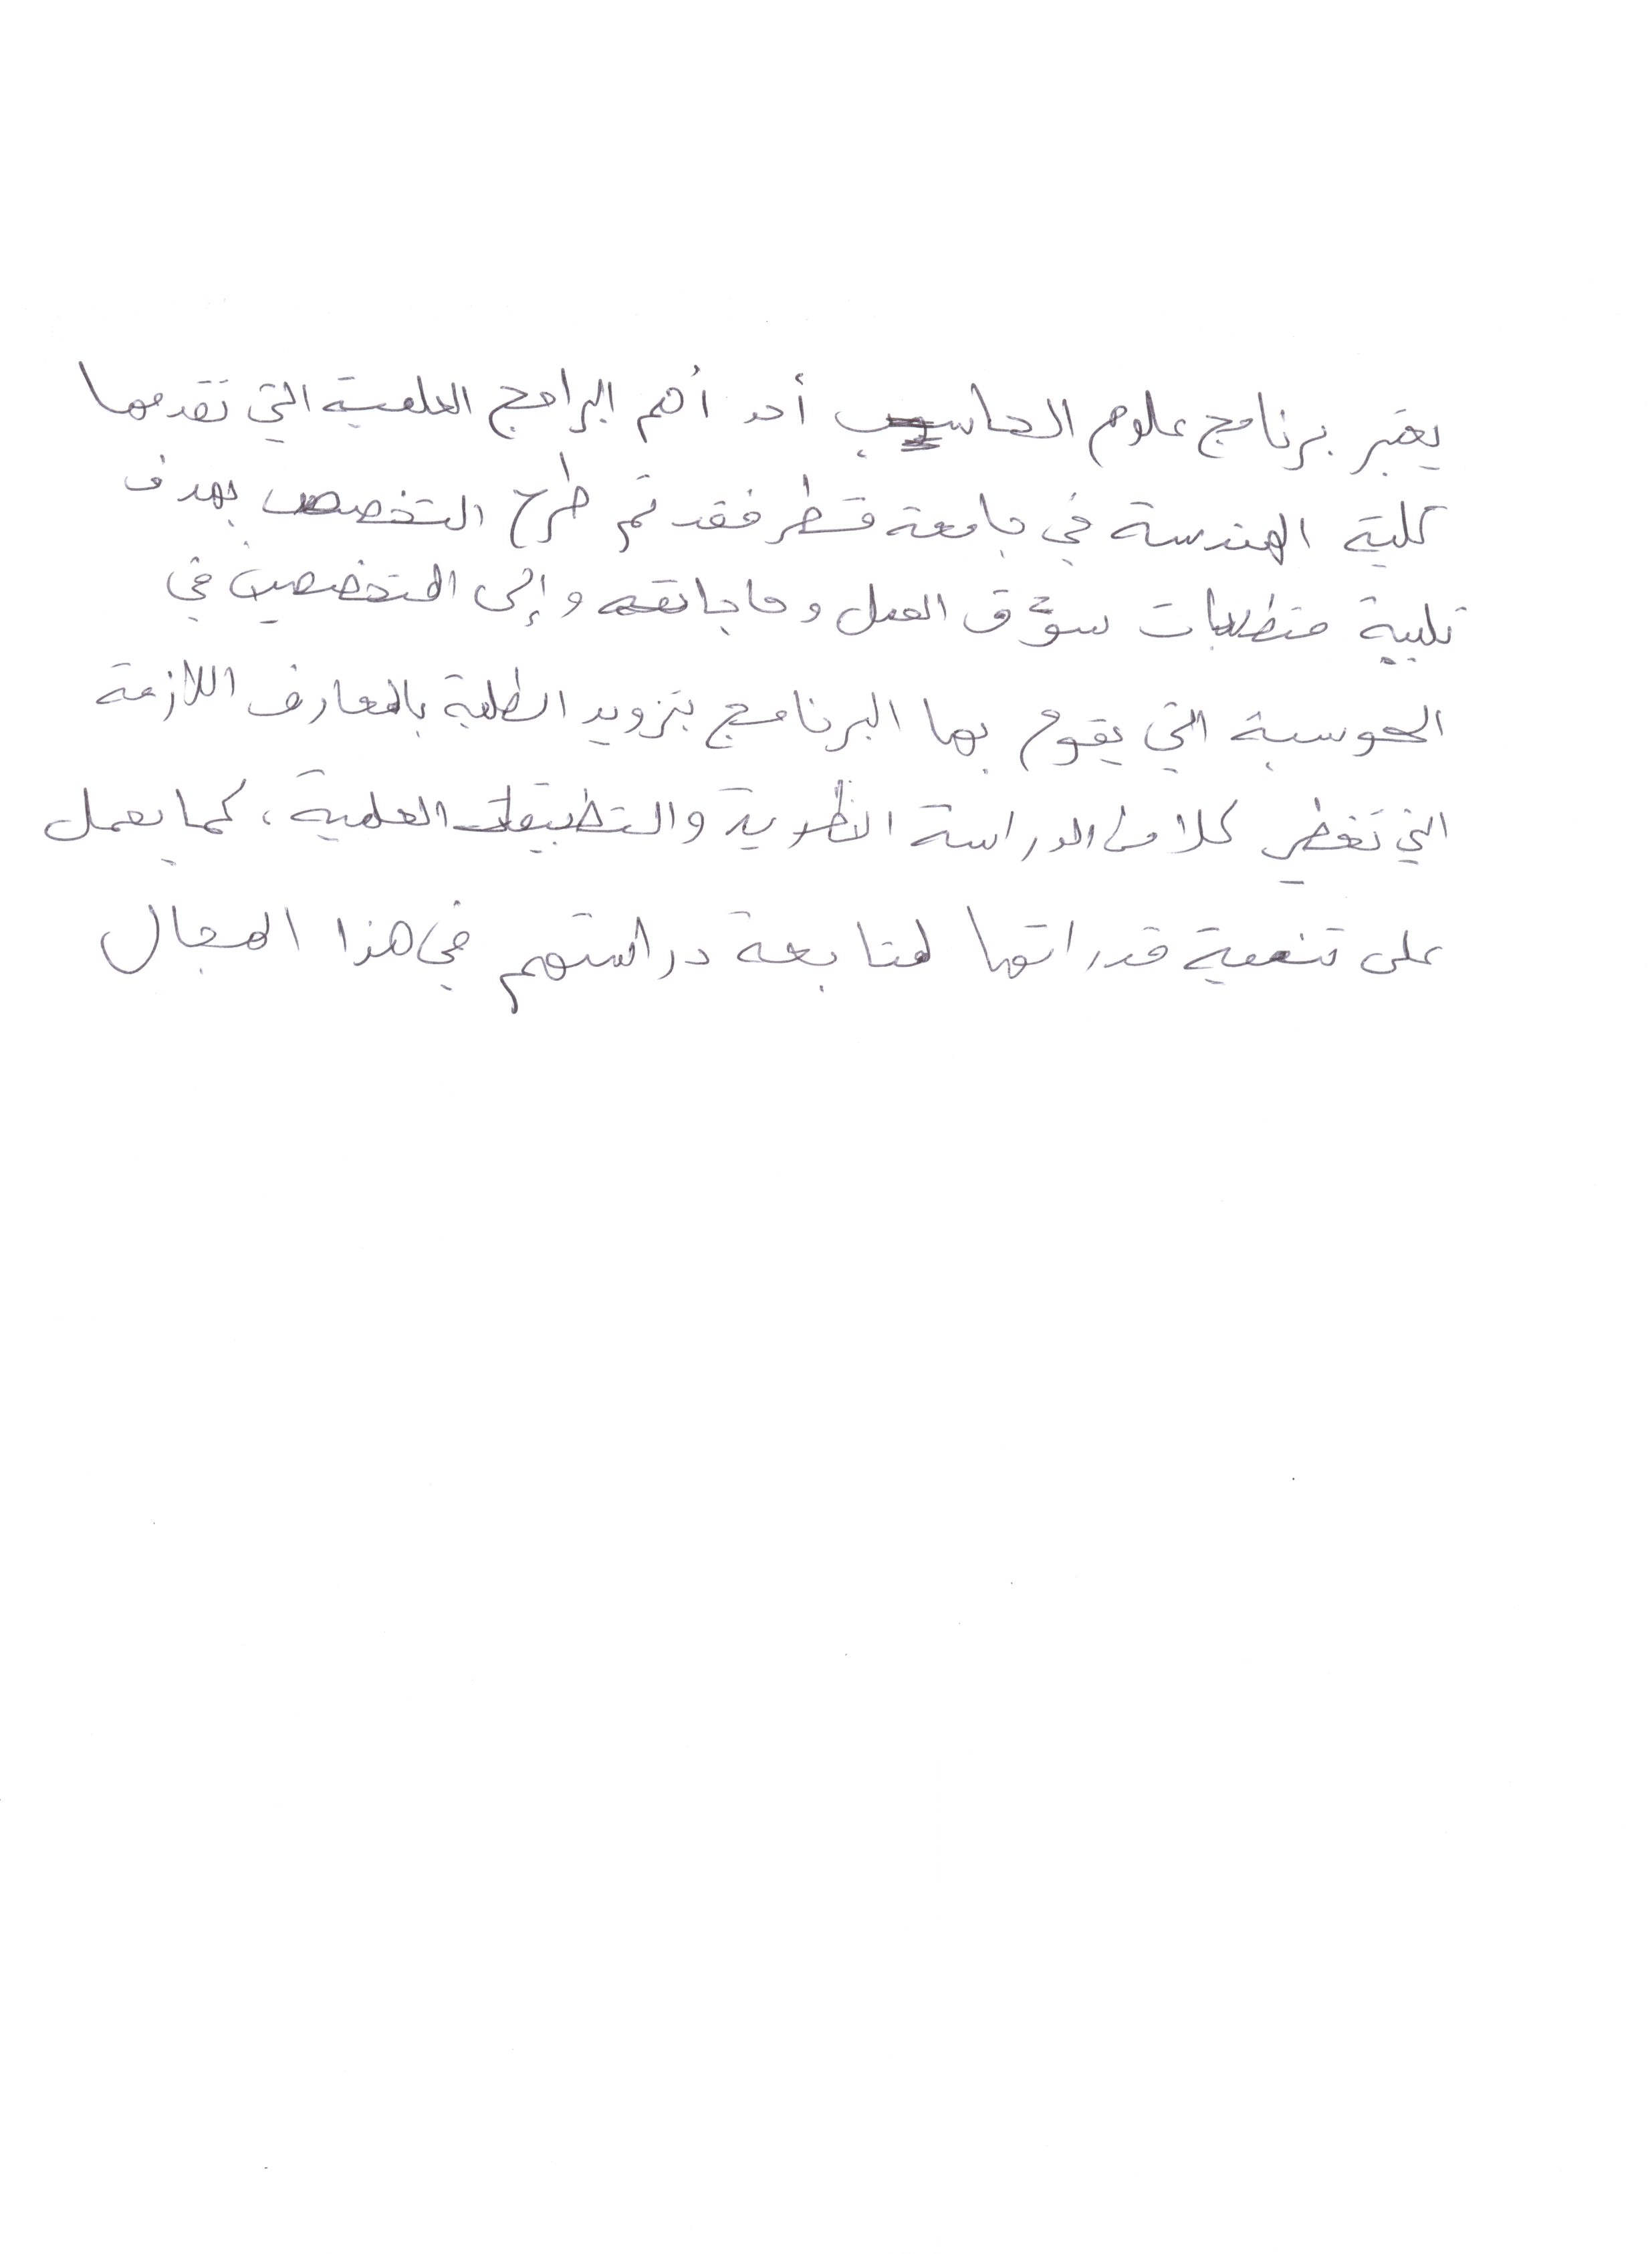 يعتبر برنامج علوم الحاسب أحد أهم البرامج العلمية التي تقدمها
كلية الهندسة في جامعة قطر فقد تم طرح التخصص بهدف
تلبية متطلبات سوق العمل وحاجاته وإلى المتخصصين في
الحوسبة التي يقوم بها البرنامج بتزويد الطلبة بالمعارف اللازمة
التي تغطي كلا من الدراسة النظرية والتطبيقات العلمية، كما يعمل
على تنمية قدراتها لمتابعة دراستهم في هذا المجال